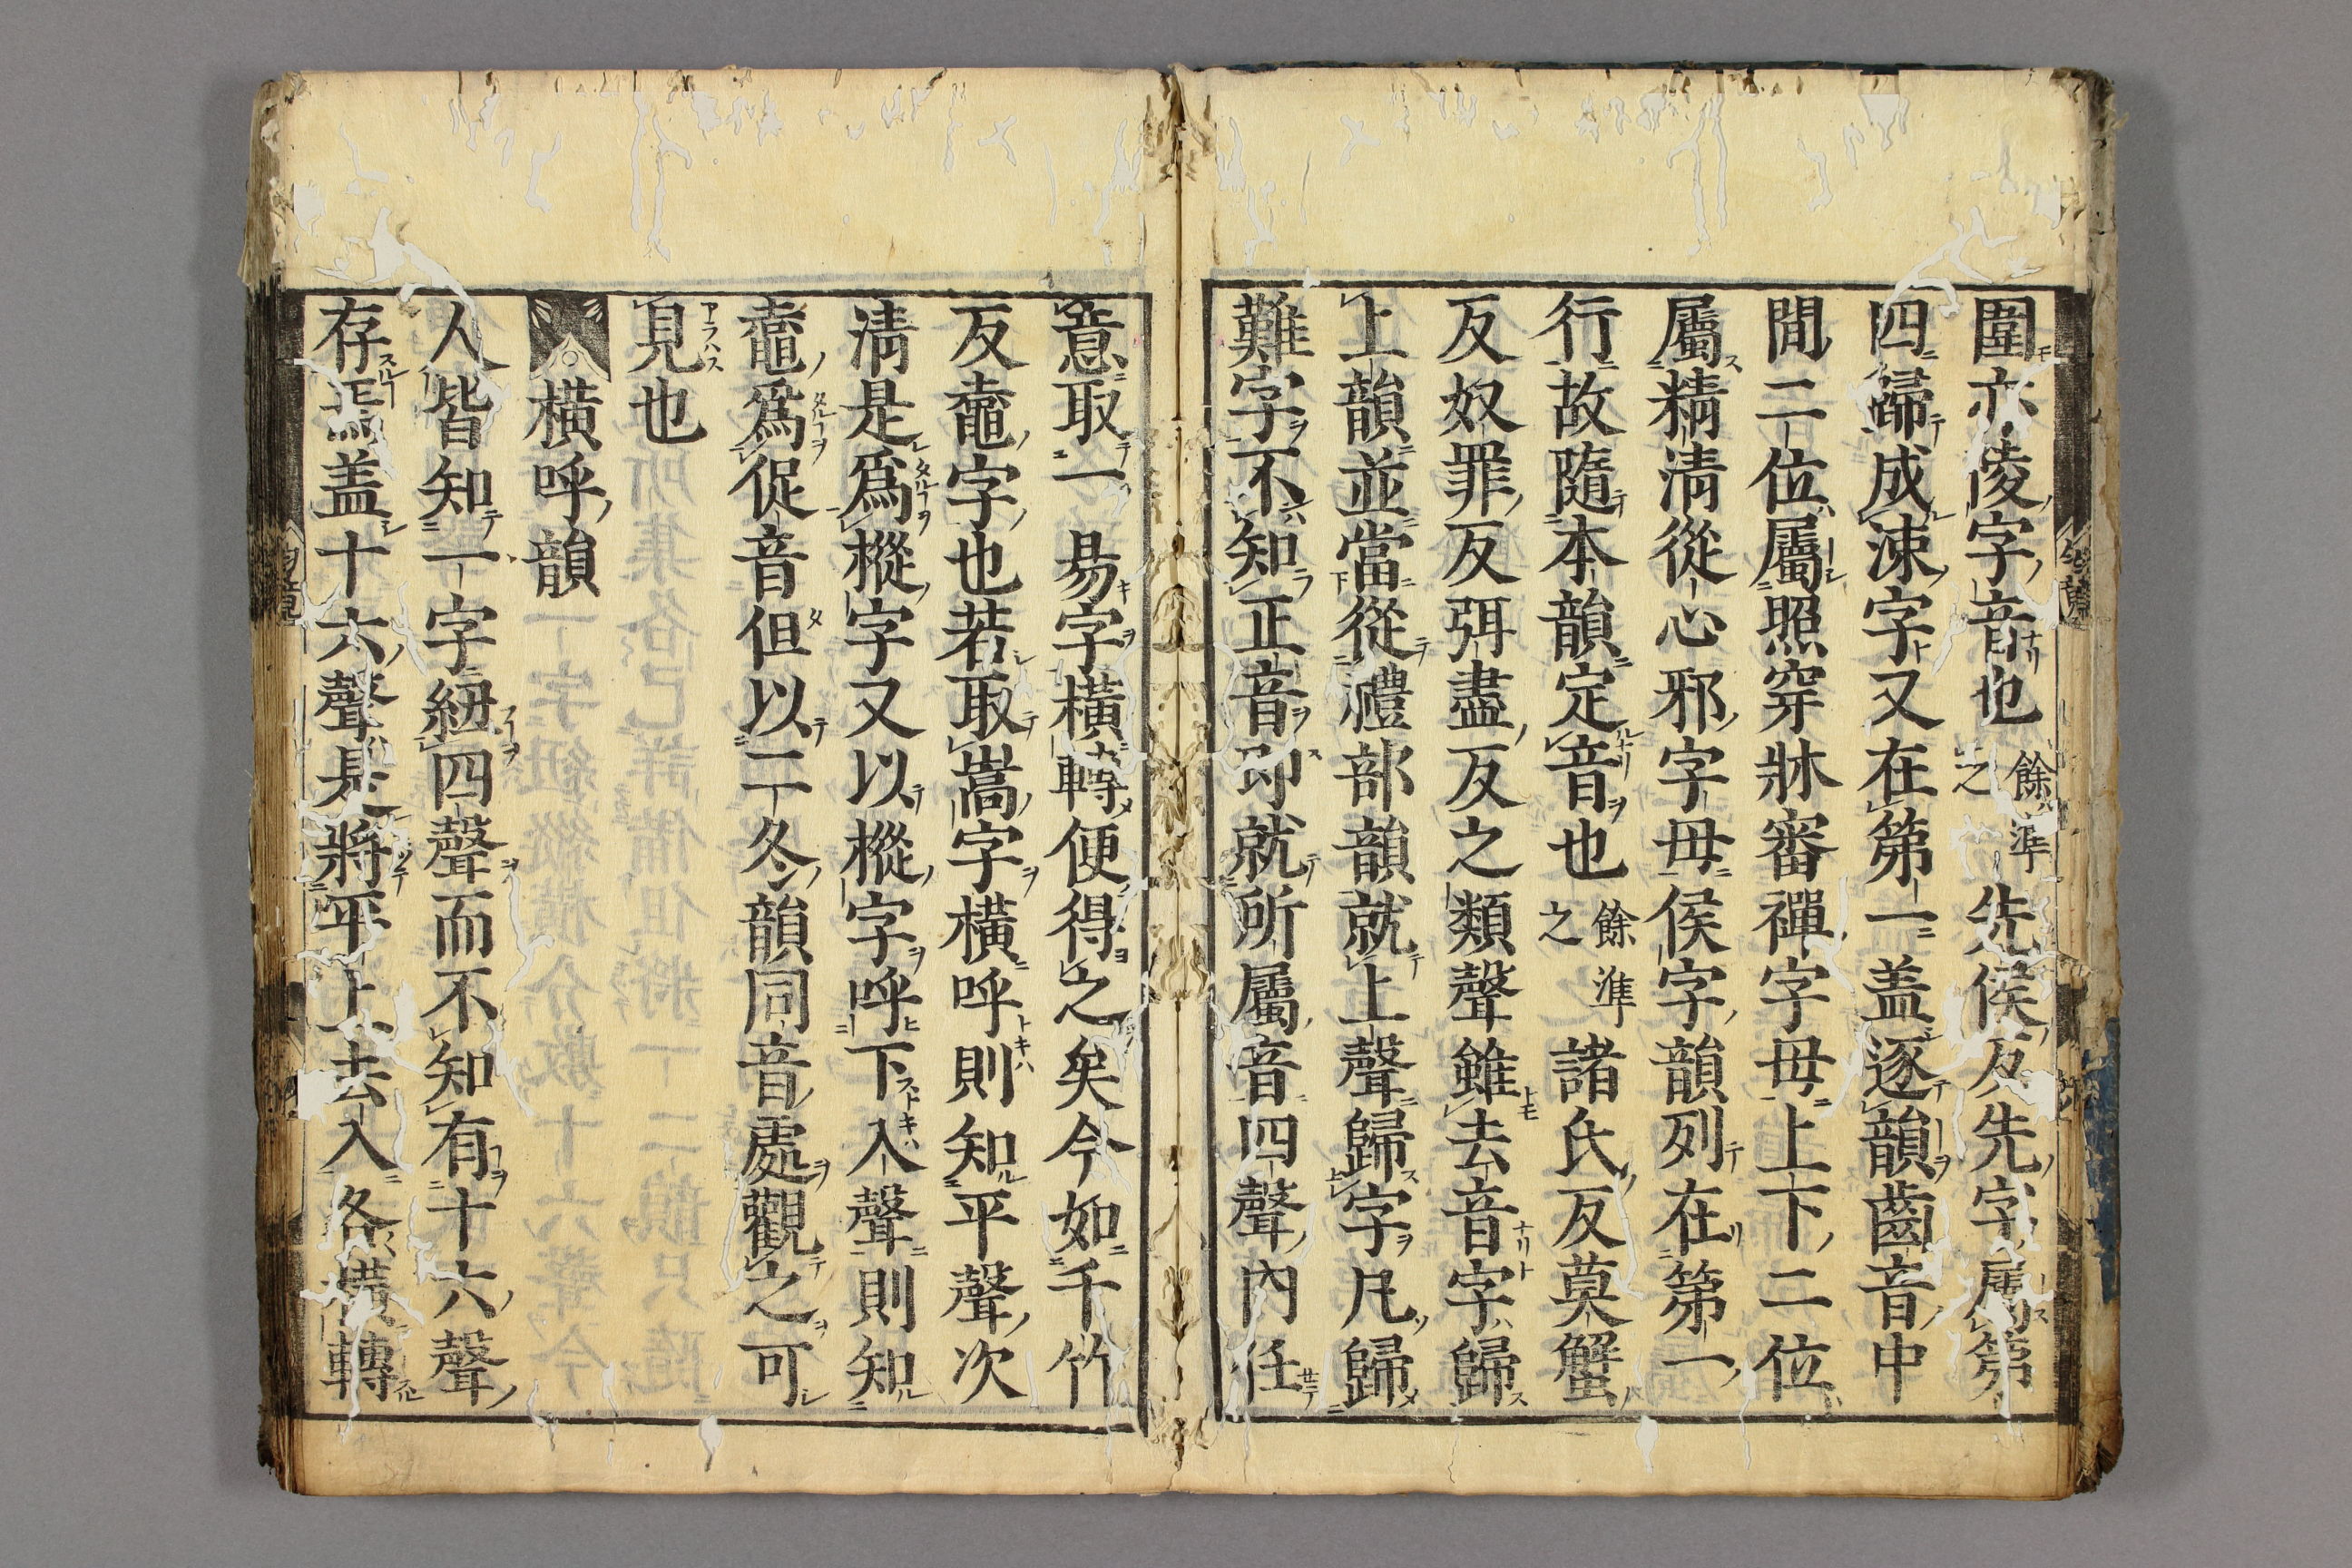 圍亦陵字音也餘準之先侯反先字屬第
四歸成涑字又在第一盖逐韻齒音中
間二位屬照穿牀審禪字母上下二位
屬精淸從心邪字母侯字韻列在第一
行故隨本韻定音也餘準之諸氏反莫蟹
反奴罪反弭盡反之類聲雖去音字歸
上韻並當從禮部韻就上聲歸字凡歸
難字不知正音即就所屬音四聲內任
意取一易字橫轉便得之矣今如千竹
反鼀字也若取嵩字橫呼則知平聲次
淸是爲樅字又以樅字呼下入聲則知
鼀爲促音但以二冬韻同音處觀之可
見也
橫呼韻
人皆知一字紐四聲而不知有十六聲
存焉盖十六聲是將平上去入各橫轉